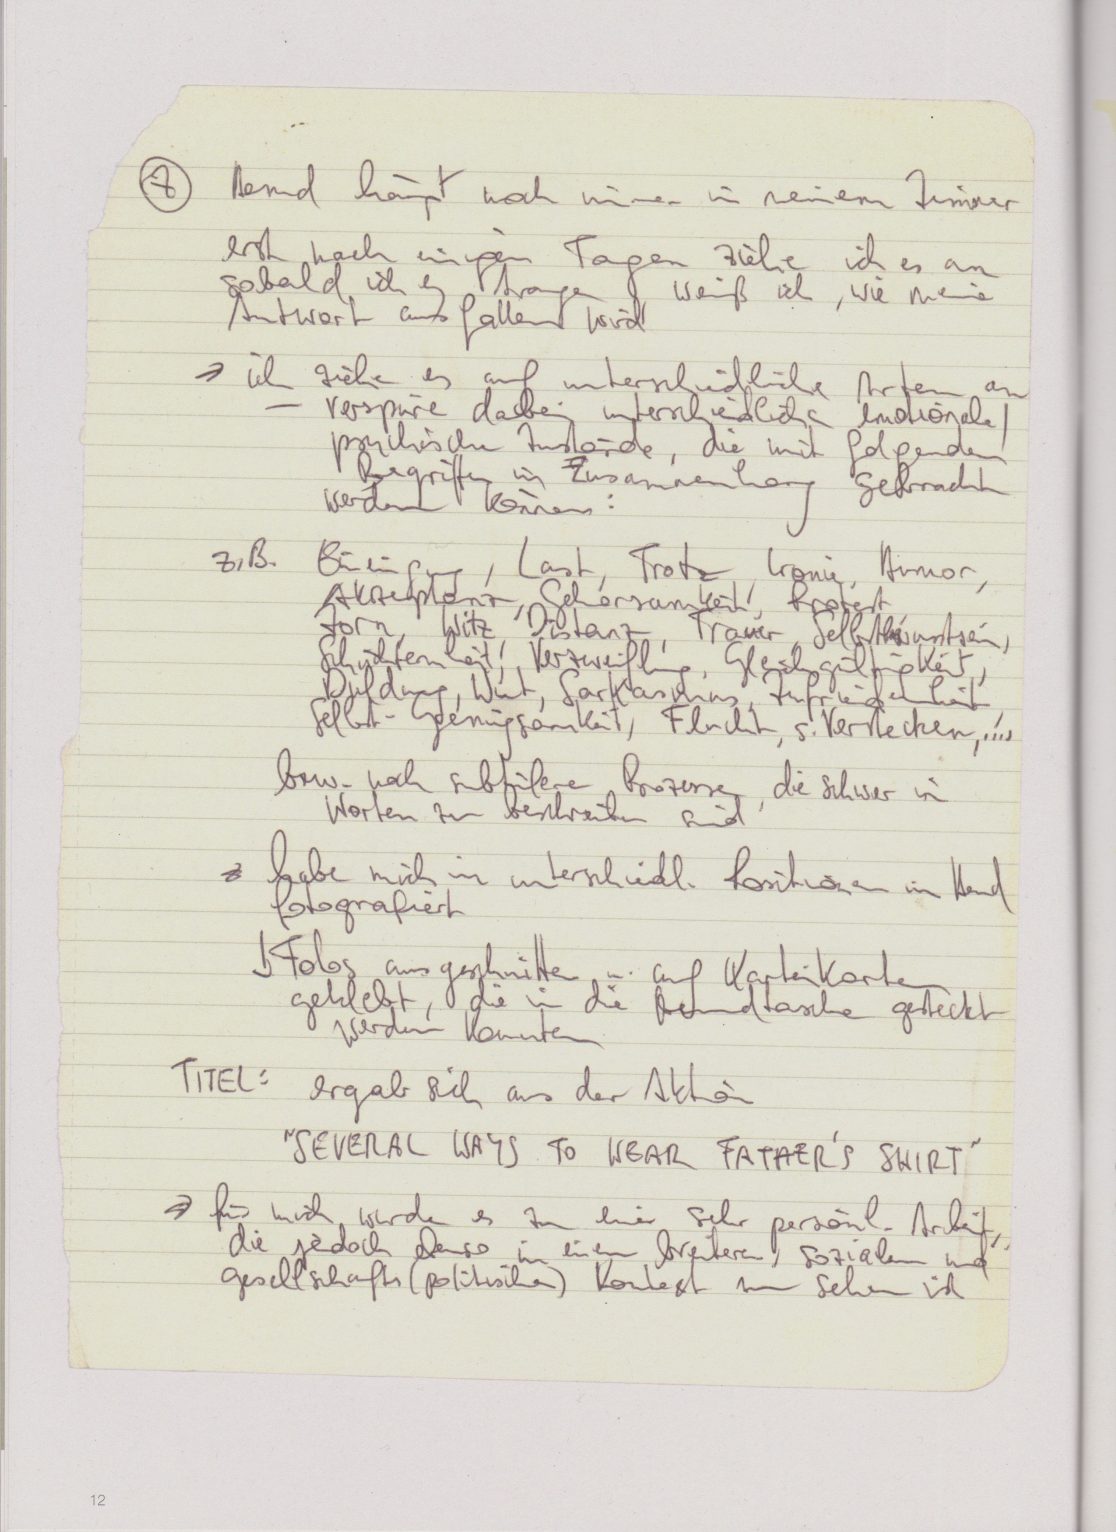 ⑦ Hemd hängt noch immer in meinem Zimmer
erst nach einigen Tagen ziehe ich es an
sobald ich es trage, weiß ich, wie meine
Antwort ausfallen wird
→ ich ziehe es auf unterschiedliche Arten an
— verspüre dabei unterschiedliche emotionale/
psychische Zustände, die mit folgenden
Begriffen in Zusammenhang gebracht
werden können:
z.B. Last, Trotz, Ironie, Humor,
Akzeptanz, Gehorsamkeit, Protest
Zorn, Witz, Distanz, Trauer, Selbstbewusstsein,
Schüchternheit, Verzweiflung, Gleichgültigkeit,
Duldung, Wut, Sarkasmus, Zufriedenheit,
Selbst-Genügsamkeit, Flucht, s. Verstecken, ....
bzw. noch subtilere Prozesse, die schwer in
Worten zu beschreiben sind
→ habe mich in unterschiedl. Positionen im Hemd
fotografiert
↳ Fotos ausgeschnitten u. auf Karteikarten
geklebt, die in die Hemdtasche gesteckt
werden konnten
TITEL: ergab sich aus der Aktion
"SEVERAL WAYS TO WEAR FATHER'S SHIRT"
→ für mich wurde es zu einer sehr persönl. Arbeit,
die jedoch ebenso in einem breiteren, sozialen und
gesellschafts(politischen) Kontext zu sehen ist
12